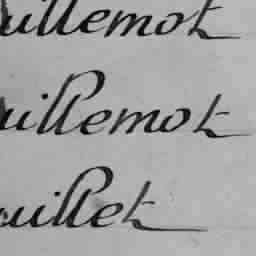 uillemot
uillemot
uillet